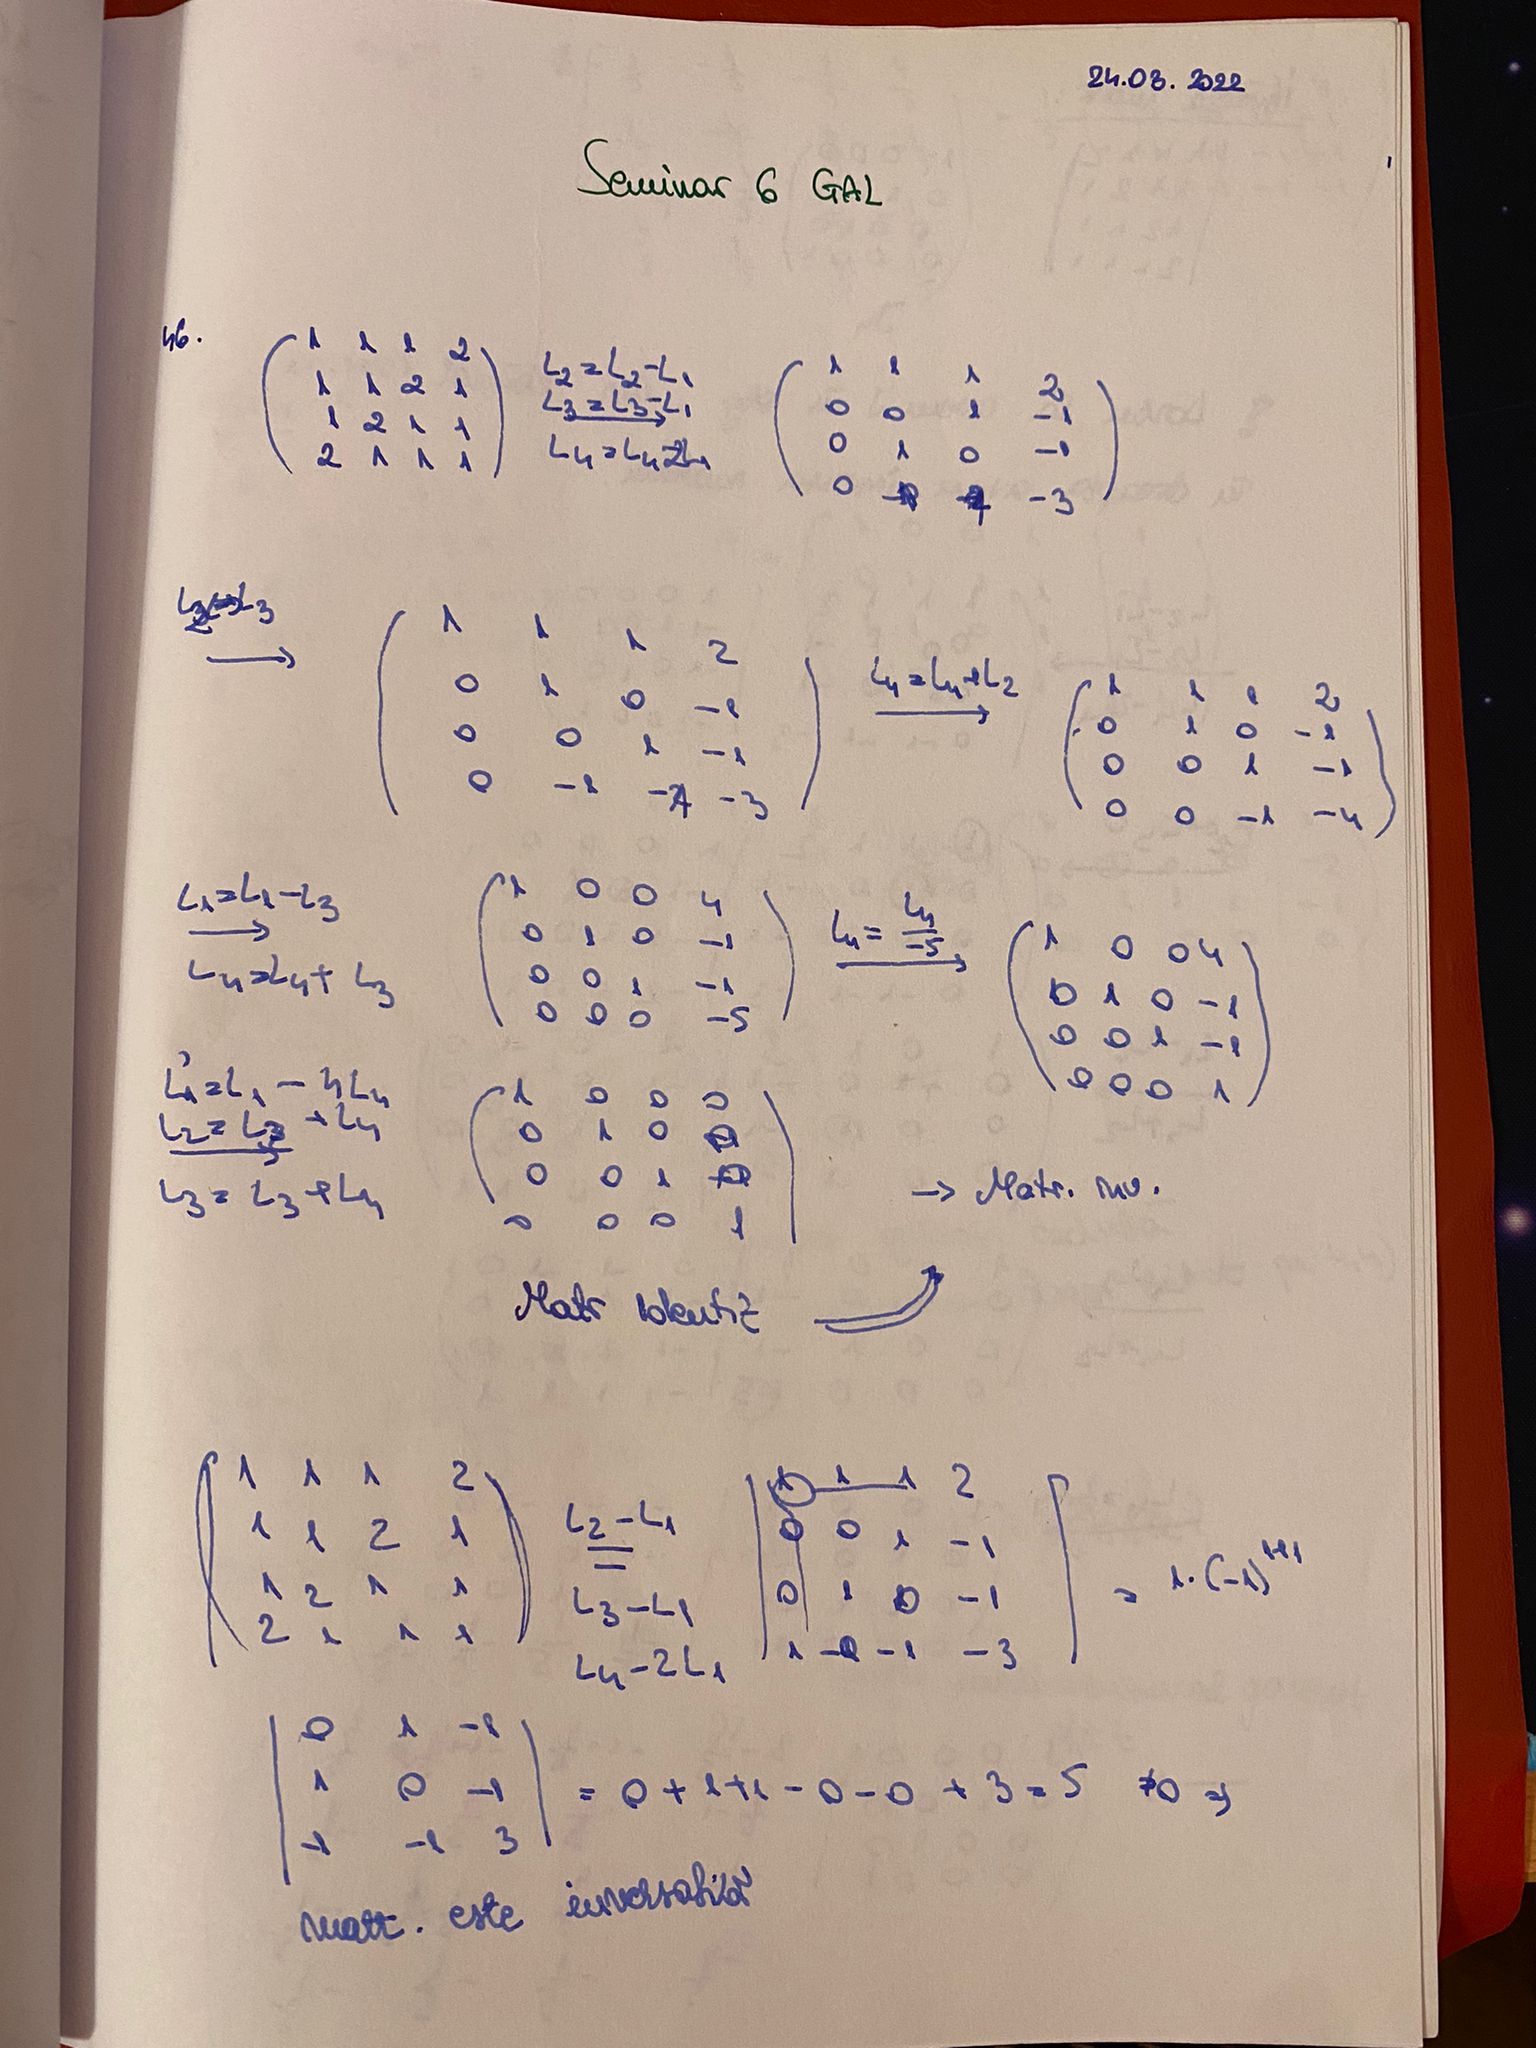 24.03.2022
Seminar 6 GAL
46.
( 1 1 1 2
1 1 2 1
1 2 1 1
2 1 1 1 )
L2 = L2 - L1
L3 = L3 - L1
→
L4 = L4 - 2L1
( 1 1 1 2
0 0 1 -1
0 1 0 -1
0 -1 -1 -3 )
→
( 1 1 1 2
0 1 0 -1
0 0 1 -1
0 -1 -1 -3 )
L4 = L4 + L2
→
( 1 1 1 2
0 1 0 -1
0 0 1 -1
0 0 -1 -4 )
L1 = L1 - L3
→
L4 = L4 + L3
( 1 0 0 4
0 1 0 -1
0 0 1 -1
0 0 0 -5 )
L4 = L4/-5
→
( 1 0 0 4
0 1 0 -1
0 0 1 -1
0 0 0 1 )
L1 = L1 - 4L4
L2 = L2 + L4
→
L3 = L3 + L4
( 1 0 0 0
0 1 0 0
0 0 1 0
0 0 0 1 )
→ Matr. inv.
Matr identit
| 1 1 1 2
1 1 2 1
1 2 1 1
2 1 1 1 |
L2 - L1
=
L3 - L1
L4 - 2L1
| 1 1 1 2
0 0 1 -1
0 1 0 -1
1 -1 -1 -3 |
= 1·(-1)^1+1
| 0 1 -1
1 0 -1
-1 -1 3 | = 0 + 1 + 1 - 0 - 0 + 3 = 5 ≠ 0 ⇒
matr. este inversabilă